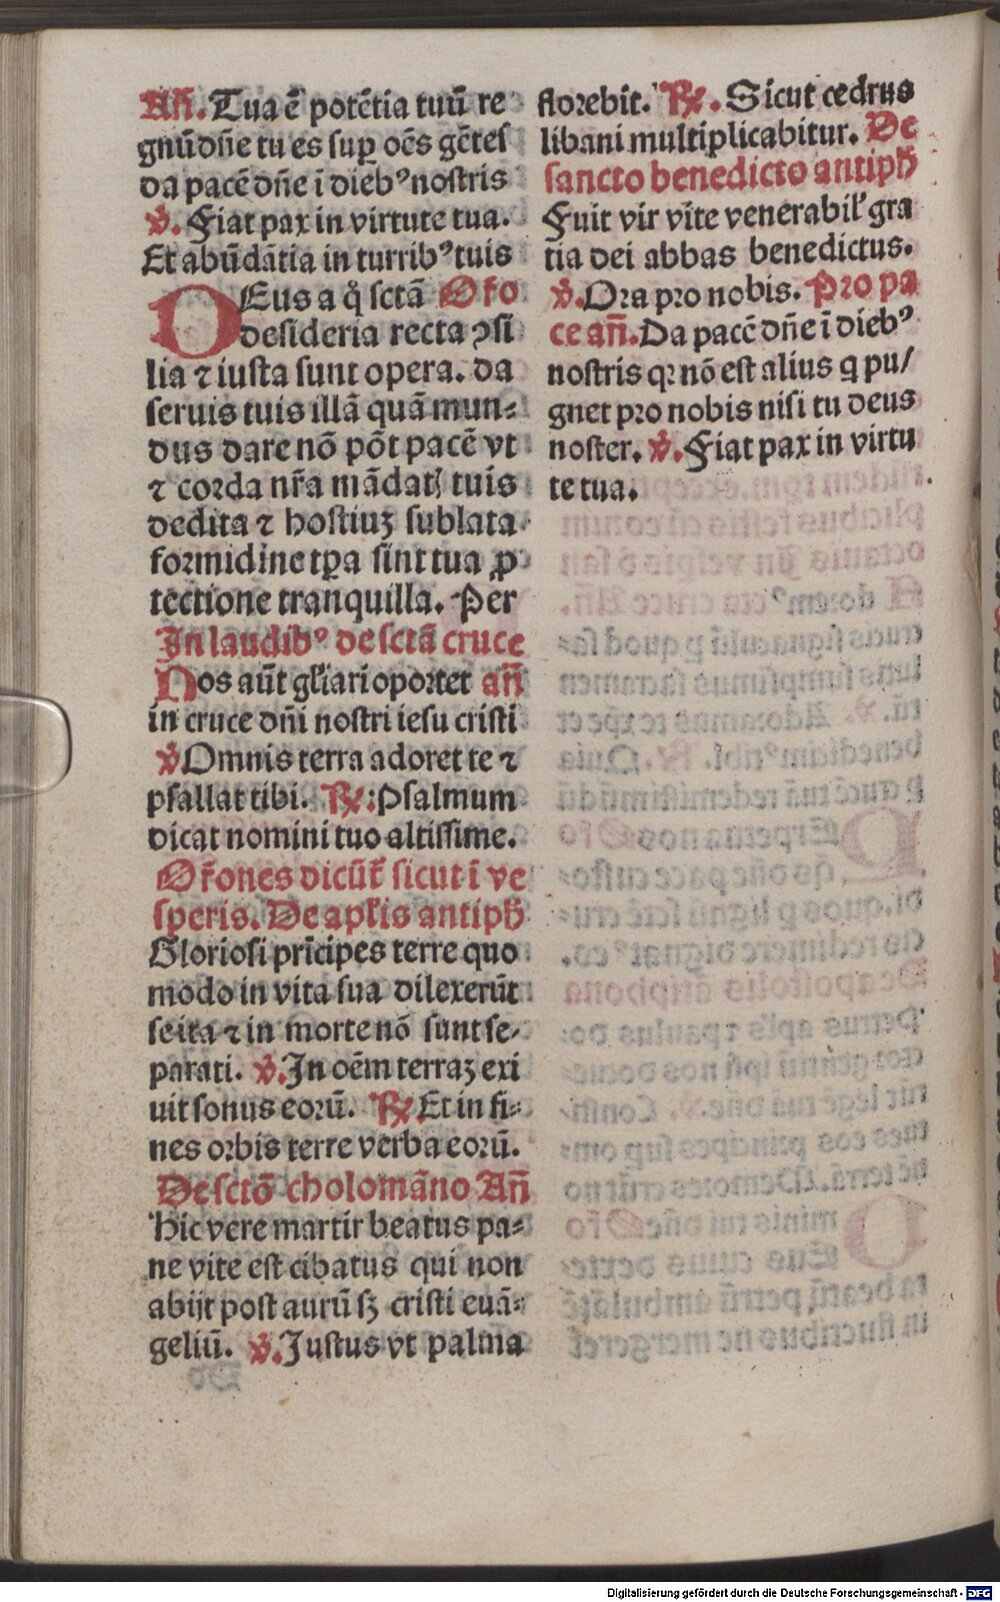 Añ. Tua ē potētia tuū re
gnū dñe tu es suꝑ oēs gētes
da pacē dñe ī diebꝰ nostris
℣. Fiat pax in virtute tua.
Et abūdātia in turribꝰ tuis
DEus a q̊ sctā Oŕo
desideria recta ꝯsi
lia ⁊ iusta sunt opera. da
seruis tuis illā quā mun⸗
dus dare nō pōt pacē vt
⁊ corda nr̄a mādatꝭ tuis
dedita ⁊ hostiuꝫ sublata
formidine tꝑa sint tua ꝓ
tectione tranquilla. Per
In laudibꝰ de sctā cruce
Nos aūt gl̄iari oportet añ
in cruce dñi nostri iesu cristi
℣ Omnis terra adoret te ⁊
psallat tibi. ℟: Psalmum
dicat nomini tuo altissime.
Oŕones dicūt̄ sicut ī ve
speris. De apl̄is antiph̄
Gloriosi prīcipes terre quo
modo in vita sua dilexerūt
se ita ⁊ in morte nō sunt se⸗
parati. ℣. In oēm terraꝫ exi
uit sonus eorū. ℟ Et in fi⸗
nes orbis terre verba eorū.
De sctō cholomāno Añ
Hic vere martir beatus pa⸗
ne vite est cibatus qui non
abijt post aurū sꝫ cristi euā⸗
geliū. ℣. Justus vt palma
florebit. ℟. Sicut cedrus
libani multiplicabitur. De
sancto benedicto antiph̄
Fuit vir vite venerabil̕ gra
tia dei abbas benedictus.
℣. Ora pro nobis. Pro pa
ce añ. Da pacē dñe ī diebꝰ
nostris qꝛ nō est alius q pu/
gnet pro nobis nisi tu deus
noster. ℣. Fiat pax in virtu
te tua.
Digitalisierung gefördert durch die Deutsche Forschungsgemeinschaft - DFG